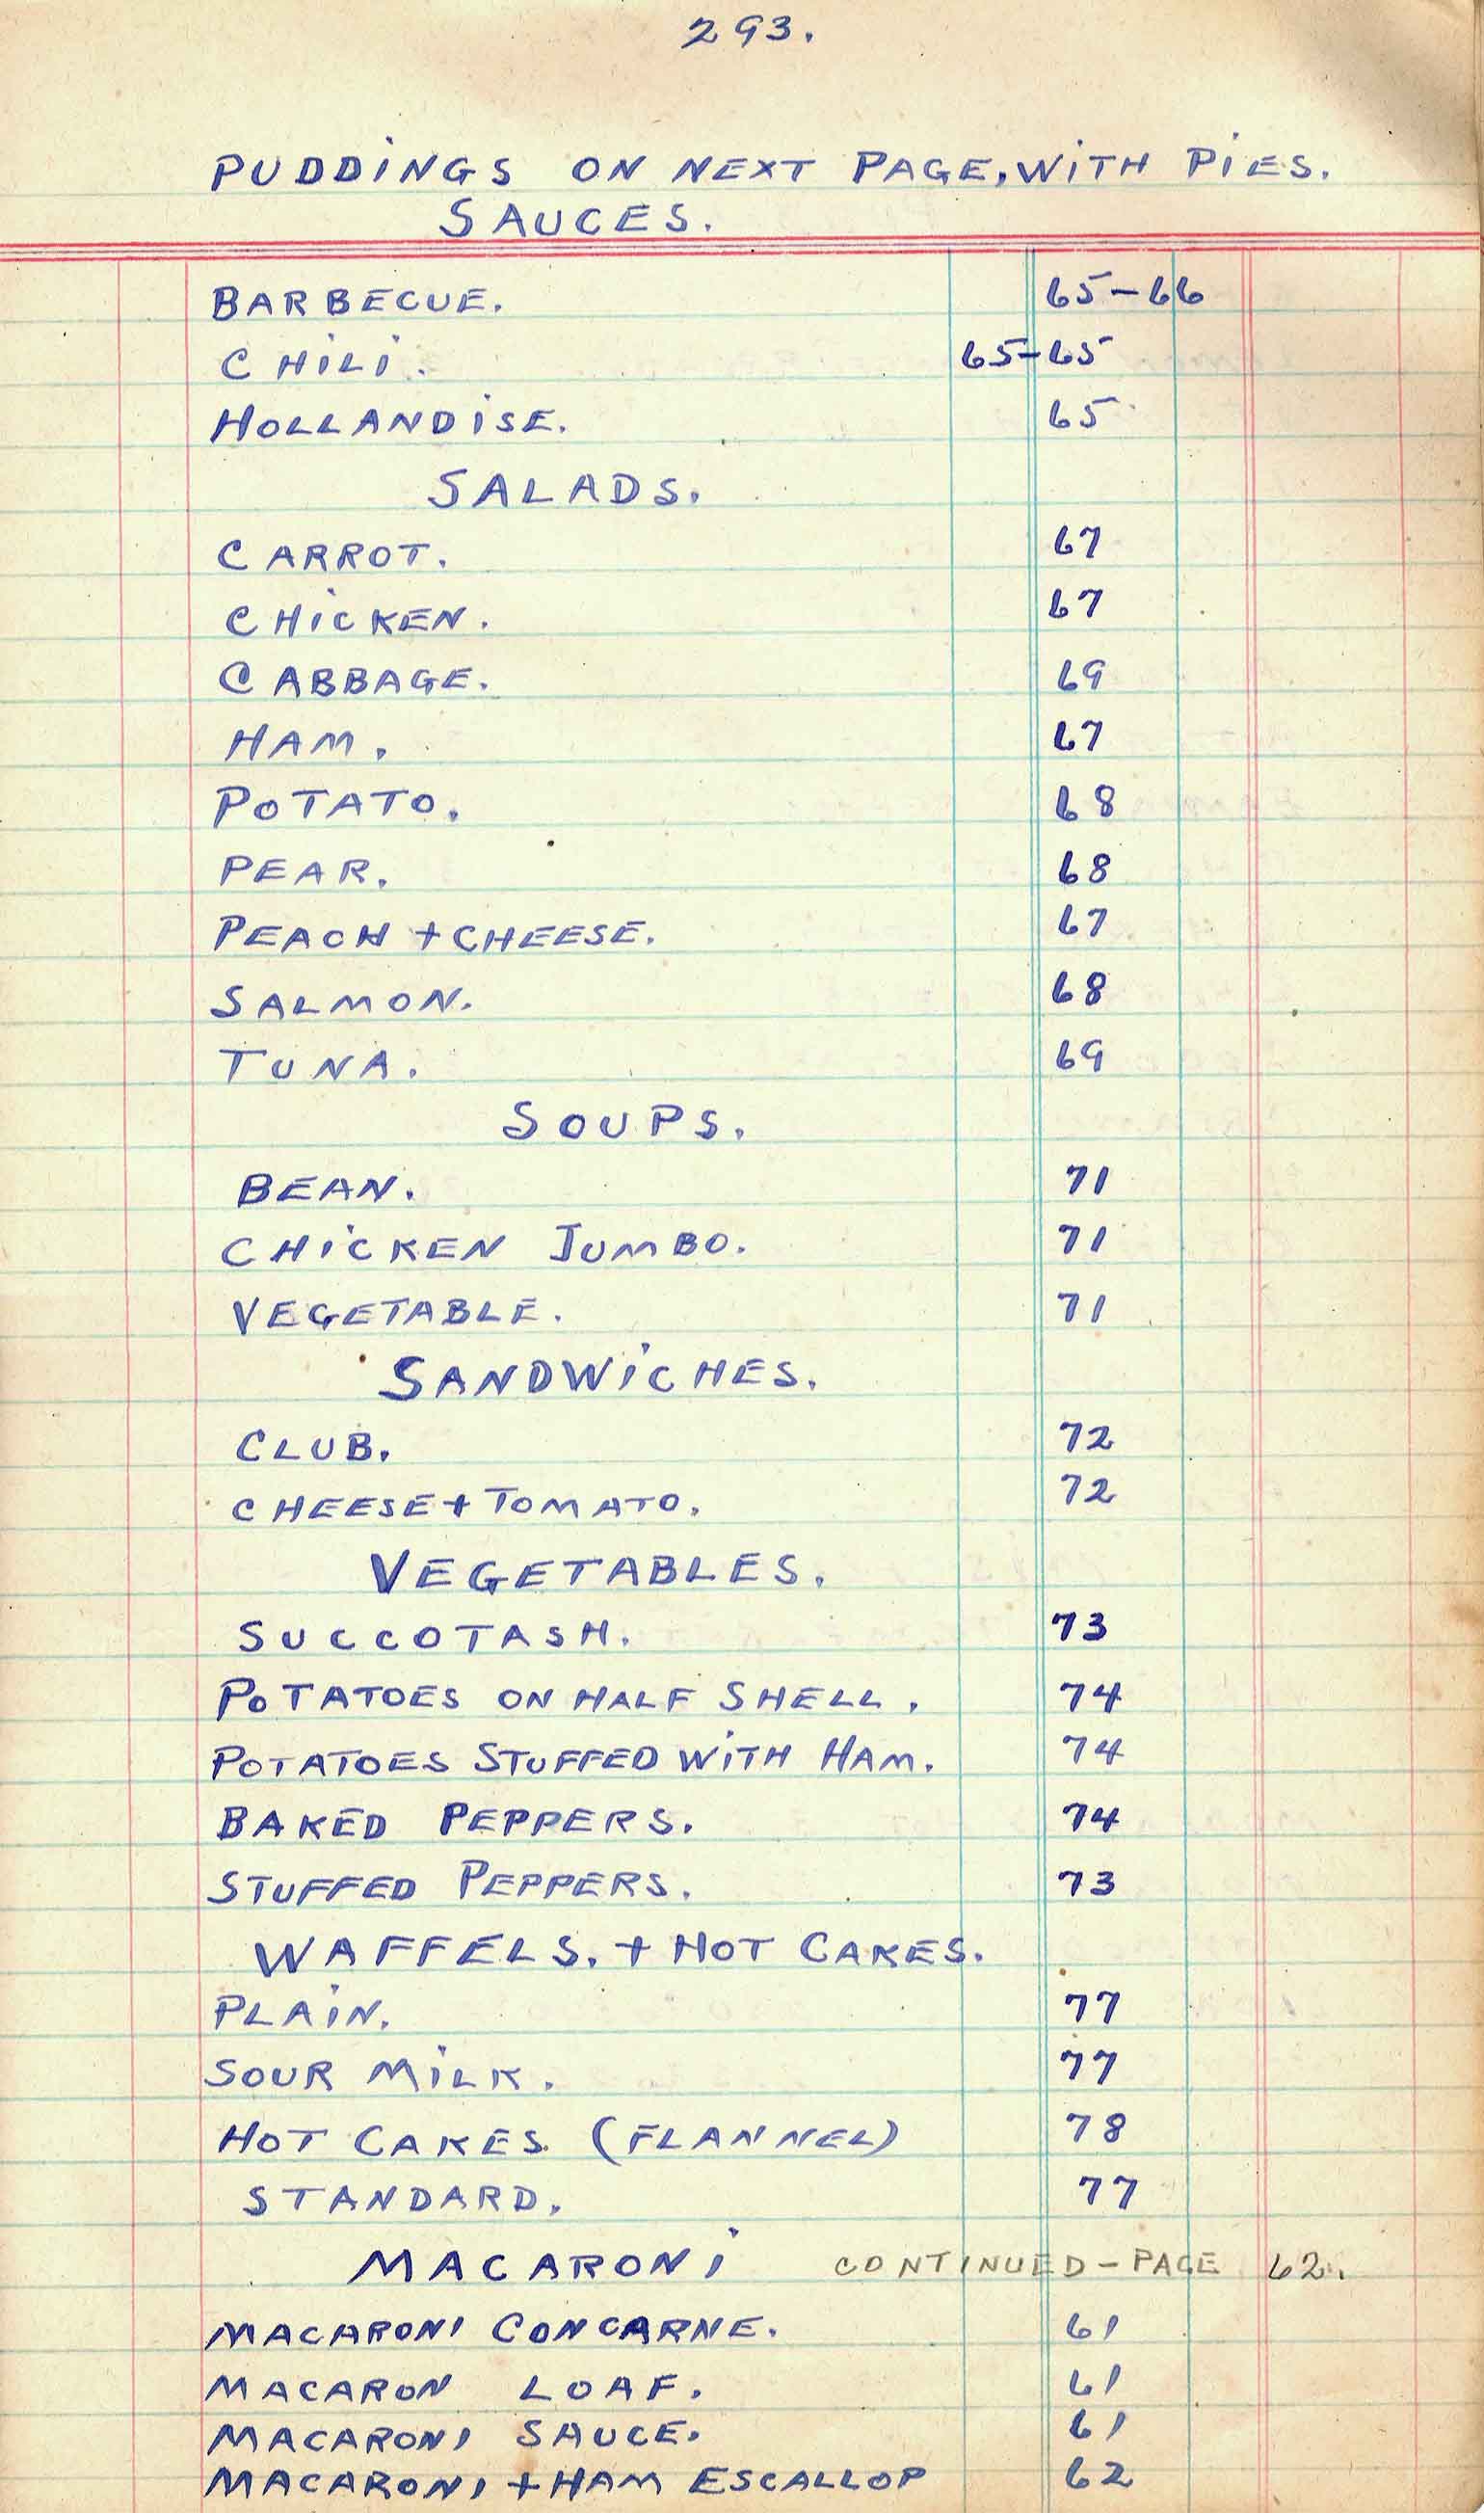 293.
PUDDINGS ON NEXT PAGE, WITH PIES.
SAUCES.
BARBECUE. 65-66
CHILI. 65-65
HOLLANDISE. 65
SALADS.
CARROT. 67
CHICKEN. 67
CABBAGE. 69
HAM. 67
POTATO. 68
PEAR. 68
PEACH + CHEESE. 67
SALMON. 68
TUNA. 69
SOUPS.
BEAN. 71
CHICKEN JUMBO. 71
VEGETABLE. 71
SANDWICHES.
CLUB. 72
CHEESE + TOMATO. 72
VEGETABLES.
SUCCOTASH. 73
POTATOES ON HALF SHELL. 74
POTATOES STUFFED WITH HAM. 74
BAKED PEPPERS. 74
STUFFED PEPPERS. 73
WAFFELS. + HOT CAKES.
PLAIN. 77
SOUR MILK. 77
HOT CAKES. (FLANNEL) 78
STANDARD. 77
MACARONI CONTINUED - PAGE 62.
MACARONI CONCARNE. 61
MACARON LOAF. 61
MACARONI SAUCE. 61
MACARONI + HAM ESCALLOP 62